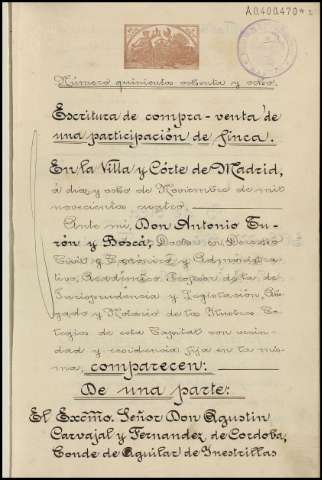 A0.400.470
Número quinientos ochenta y ocho.
Escritura de compra-venta de
una participación de finca.
En la Villa y Córte de Madrid,
á diez y ocho de Noviembre de mil
novecientos
Ante mí, Don Antonio Tu-
rón y Boscá, Doctor en Derecho
Civil y Canónico y Administra-
tivo, Académico Profesor de la de
Jurisprudencia y Legislación, Abo-
gado y Notario de los Ilustres Co-
legios de esta Capital con vecin-
dad y residencia fija en la mis-
ma, comparecen:
De una parte:
El Excmo. Señor Don Agustin
Carvajal y Fernandez de Cordoba,
Conde de Aguilar de Inestrillas